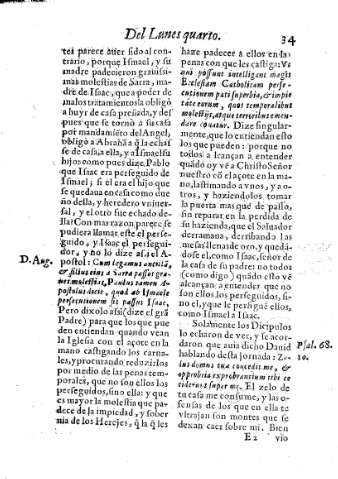 Del Lunes quarto.
34
tes parece aver sido al con-
trario, porque Ismael, y su
madre padecieron gravissi-
mas molestias de Sarra, ma-
dre de Isac, que a poder de
malos tratamientos la obligò
a huyr de casa preñada, y des
pues que se tornò a su casa
por mandamiẽto del Angel,
obligò a Abrahã a q̃ la echas
se de casa, a ella, y a Ismael su
hijo: como pues dize, Pablo
que Isac era perseguido de
Ismael; si el era el hijo que
se quedaua en casa como due
ño della, y heredero vniuer-
sal, y el otro fue echado de-
lla? Con mas razon, parece se
pudiera llamar este el perse-
guido, y Isac el persegui-
dor, y no lo dize assi el A-
D. Aug.
postol: Cum legamus ancillã,
& filium eius a Sarra passos gra-
ues molestias, Paulus tamen A-
postolus dicit, quod ab Ismaele
persecutionem sit passus Isaac.
Pero dixolo assi (dize el grã
Padre) para que los que pue
den entiendan quando vean
la Iglesia con el açote en la
mano castigando los carna-
les, y procurando reduzirlos
por medio de las penas tem-
porales, que no son ellos los
perseguidos, sino ella: y que
es mayor la molestia que pa-
dece de la impiedad, y sober
uia de los Herejes, q̃ la q̃ les
haze padecer a ellos en las
penas con que les castiga: Vt
qui possunt intelligant magis
Ecclesiam Catholicam perse-
cutionem pati superbia, & impie
tate eorum, quos temporalibus
molestijs, atque terroribus emen-
dare conatur. Dize singular-
mente, que lo entiendan esto
los que pueden: porque no
todos alcançan a entender
quãdo oy vẽ a Christo Señor
nuestro cõ el açote en la ma-
no, lastimando a vnos, y a o-
tros, y haziendolos tomar
la puerta mas que de passo,
sin reparar en la perdida de
su hazienda, que el Saluador
derramaua, derribando las
mesas llenas de oro, y quedã-
dose el, como Isac, señor de
la casa de su padre: no todos
(como digo) quãdo esto vẽ
alcançan a entender que no
son ellos los perseguidos, si-
no el, y que le persiguẽ ellos,
como Ismael a Isac.
Solamente los Dicipulos
lo echaron de ver, y se acor-
daron que auia dicho Dauid
Psal. 68.
hablando desta jornada: Ze-
10.
lus domus tuæ comedit me, &
opprobria exprobrantium tibi ce
ciderunt super me. El zelo de
tu casa me consume, y las o-
fensas de los que en ella te
vltrajan son montes que se
dexan caer sobre mi. Bien
E 2
vio